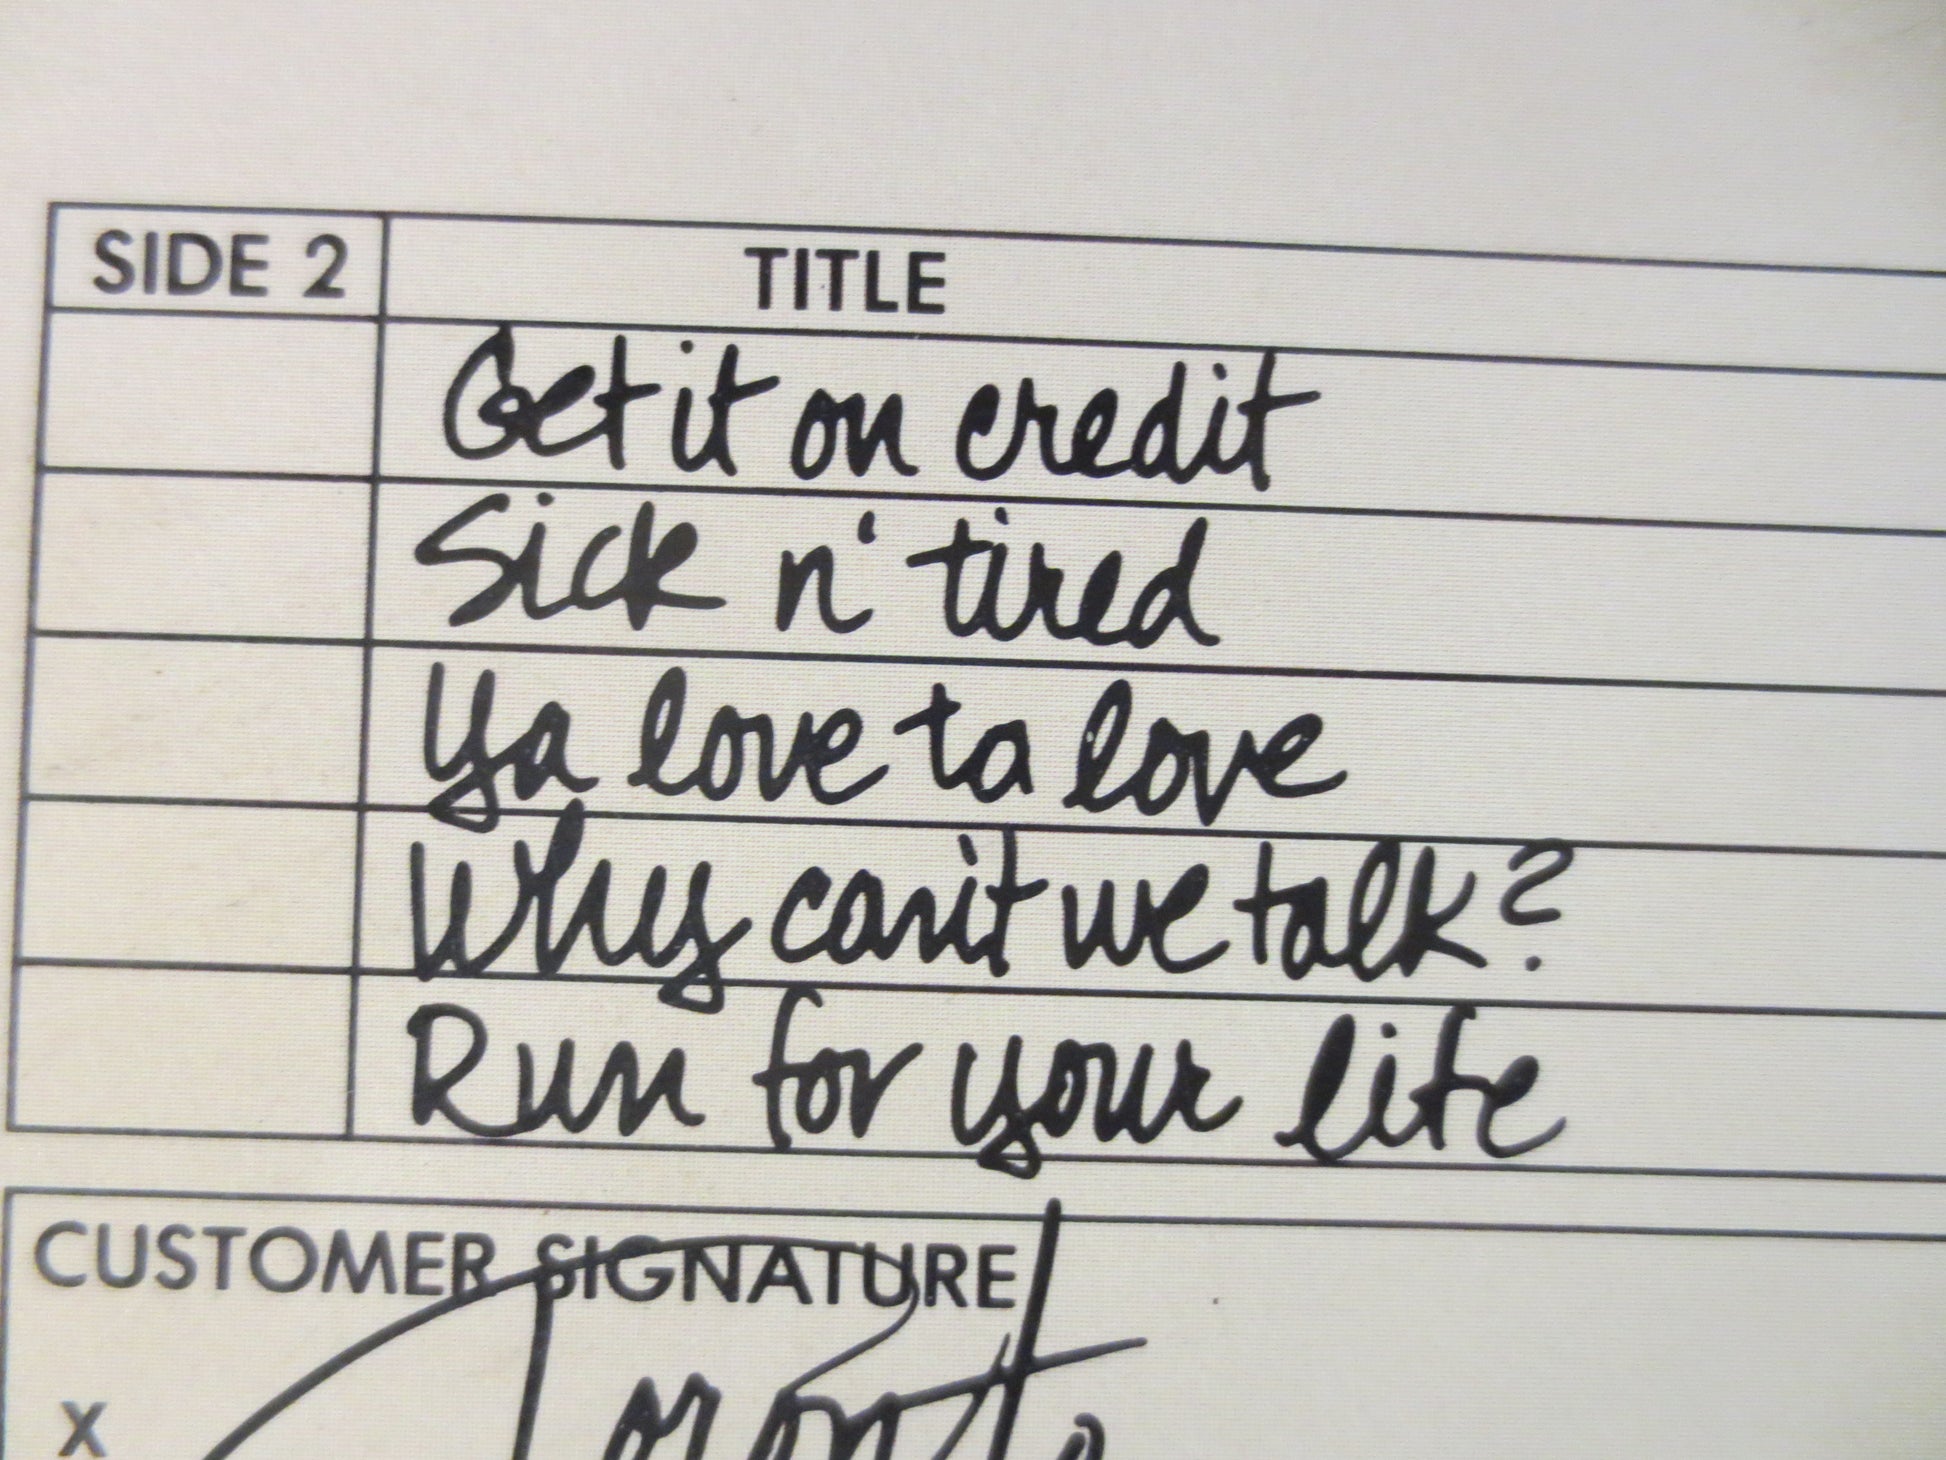 SIDE 2 TITLE
Get it on credit
Sick n' tired
Ya love ta love
Why can't we talk?
Run for your life
CUSTOMER SIGNATURE
X Toronto